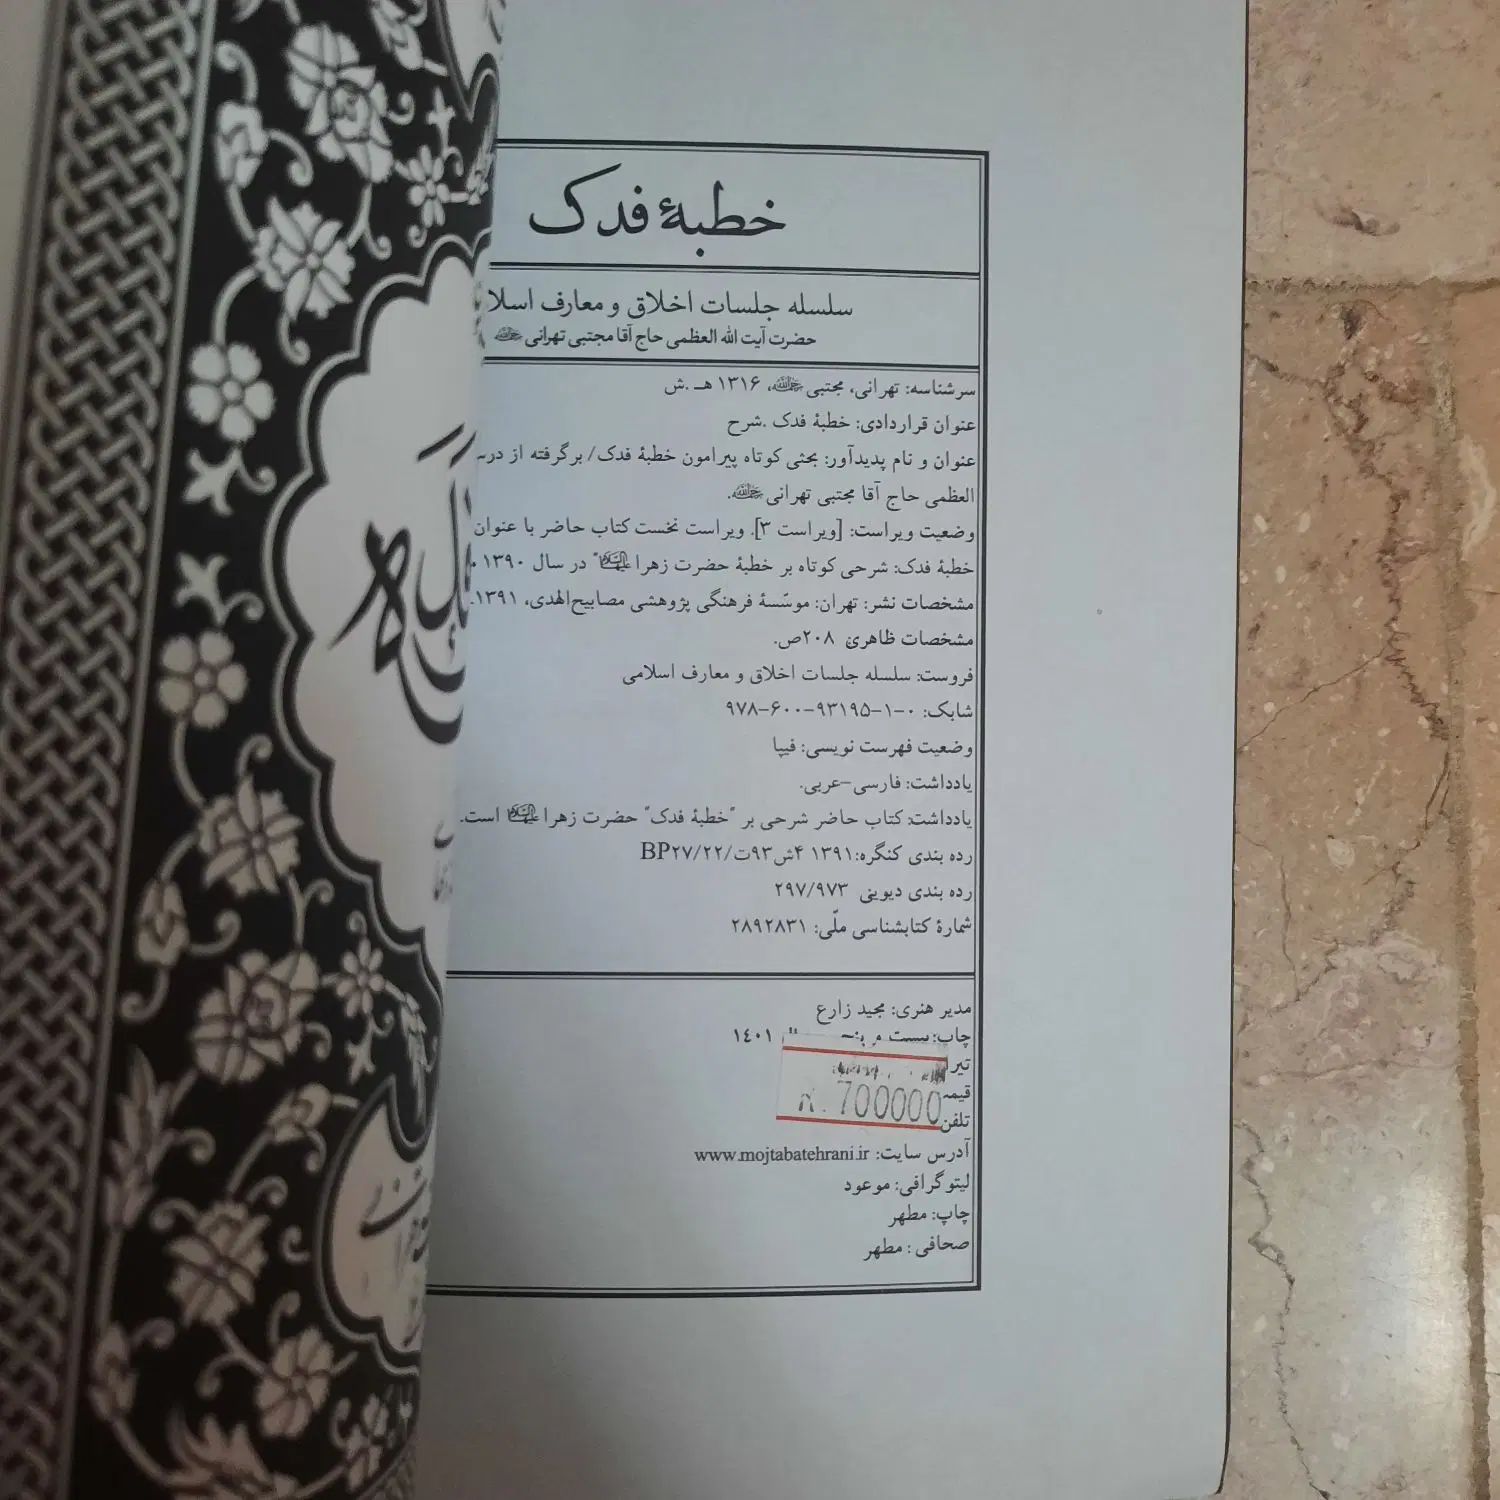 خطبهٔ فدک
سلسله جلسات اخلاق و معارف
حضرت آیت الله العظمی حاج آقا مجتبی تهرانی
سرشناسه: تهرانی، مجتبی، ۱۳۱۶ هـ .ش
عنوان قراردادی: خطبهٔ فدک .شرح
عنوان و نام پدیدآور: بحثی کوتاه پیرامون خطبهٔ فدک/ برگرفته از
العظمی حاج آقا مجتبی تهرانی.
وضعیت ویراست: [ویراست ۳]. ویراست نخست کتاب حاضر با عنوان
خطبهٔ فدک: شرحی کوتاه بر خطبهٔ حضرت زهرا" در سال ۱۳۹۰
مشخصات نشر: تهران: موسّسهٔ فرهنگی پژوهشی مصابیح‌الهدی، ۱۳۹۱.
مشخصات ظاهری ۲۰۸ص.
فروست: سلسله جلسات اخلاق و معارف اسلامی
شابک: ۰-۱-۹۳۱۹۵-۶۰۰-۹۷۸
وضعیت فهرست نویسی: فیپا
یادداشت: فارسی-عربی.
یادداشت: کتاب حاضر شرحی بر "خطبهٔ فدک" حضرت زهرا است.
رده بندی کنگره:۱۳۹۱ ۴ش۹۳ت/۲۲/BP۲۷
رده بندی دیویی ۲۹۷/۹۷۳
شمارهٔ کتابشناسی ملّی: ۲۸۹۲۸۳۱
مدیر هنری: مجید زارع
چاپ: بیست و ۱٤۰۱
700000
تلفن
آدرس سایت: www.mojtabatehrani.ir
لیتوگرافی: موعود
چاپ: مطهر
صحافی: مطهر